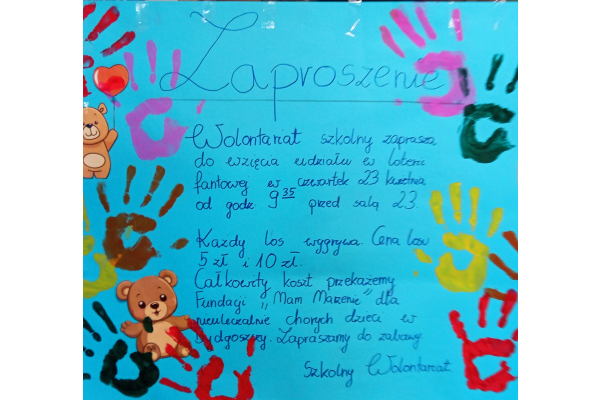 Zaproszenie
Wolontariat szkolny zaprasza
do wzięcia udziału w loterii
fantowej w czwartek 23 kwietnia
od godz. 9 35 przed salą 23.
Każdy los wygrywa. Cena losu
5 zł i 10 zł.
Całkowity koszt przekażemy
Fundacji "Mam Marzenie" dla
nieuleczalnie chorych dzieci w
Bydgoszczy. Zapraszamy do zabawy
Szkolny Wolontariat